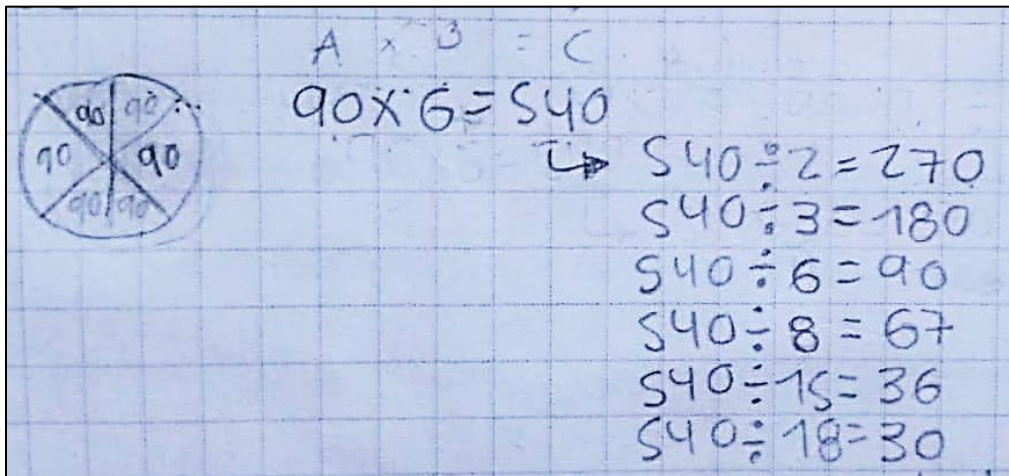 A × B = C
90 90
90 90
90 90
90×6=540
↳ 540÷2=270
540÷3=180
540÷6=90
540÷8=67
540÷15=36
540÷18=30